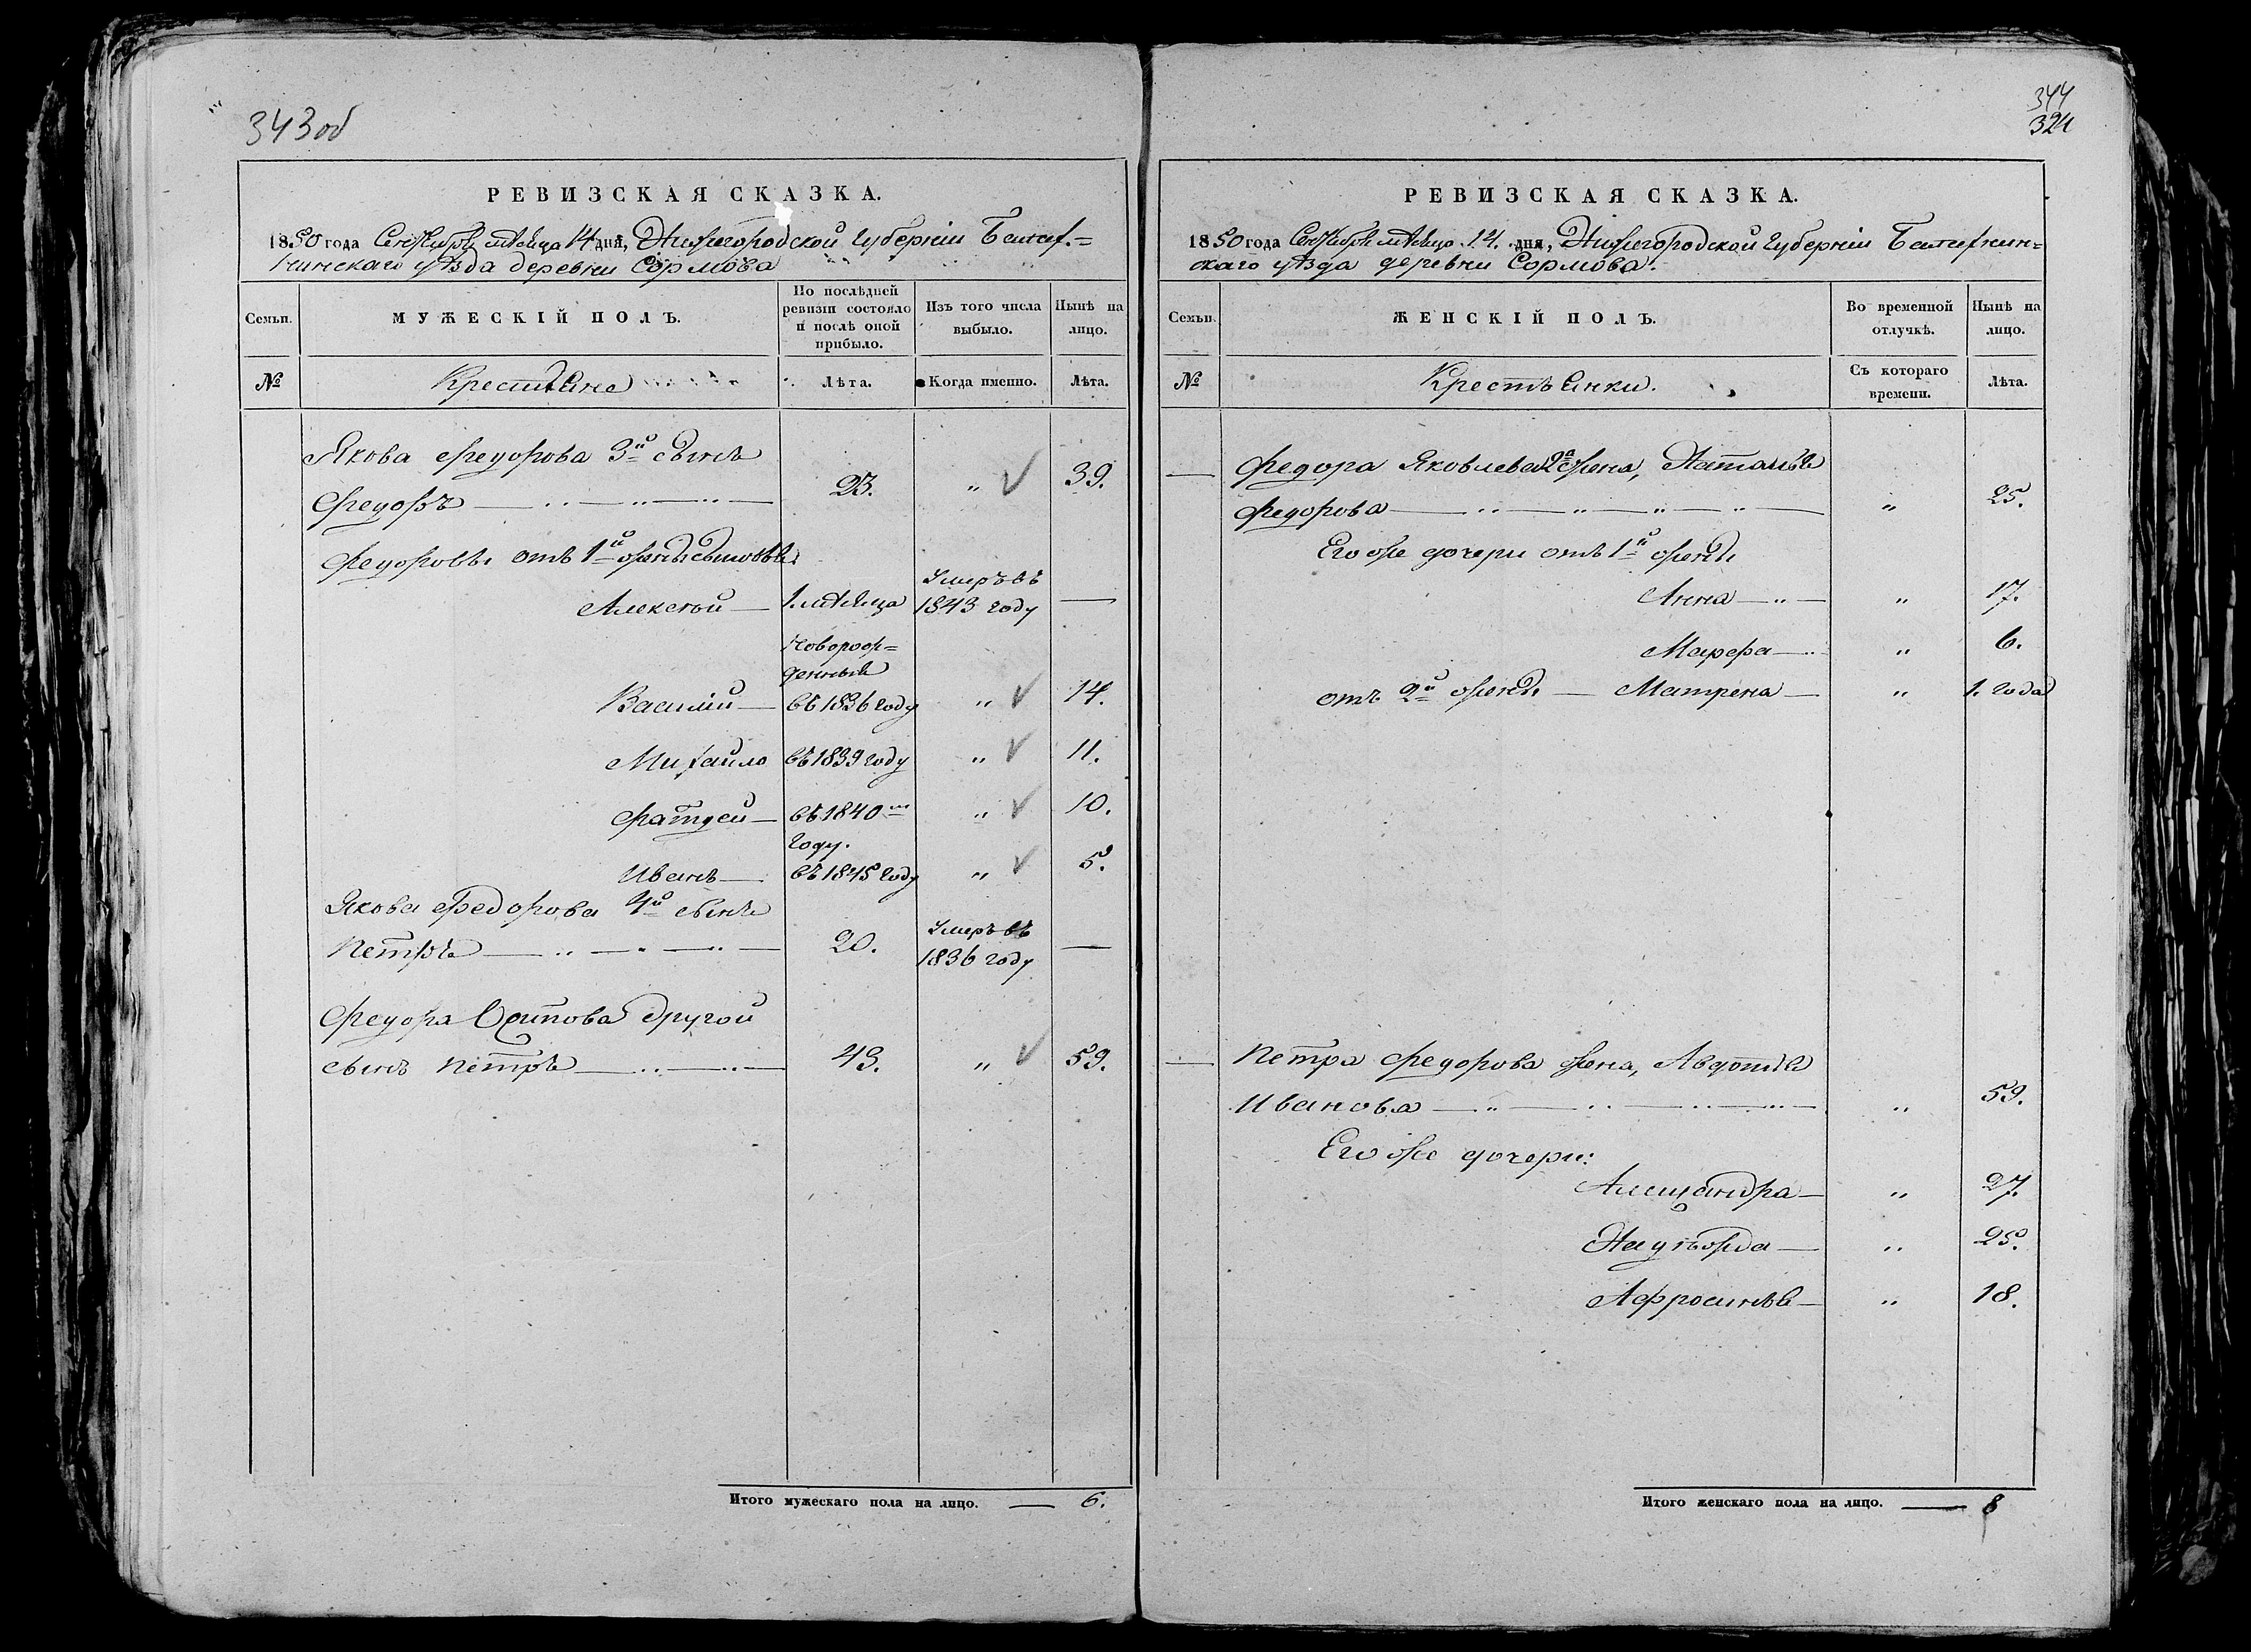 343об
РЕВИЗСКАЯ СКАЗКА.
1850 года Сентября мѣсяца 14 дня, Нижегородской губерніи Балах=
нинскаго уѣзда деревни Сормова
Семьи.
МУЖЕСКІЙ ПОЛЪ.
По послѣдней
ревизіи состояло
и послѣ оной
прибыло.
Изъ того числа
выбыло.
Нынѣ на
лицо.
№
Крестьяне
Лѣта.
Когда именно.
Лѣта.
Якова Федорова 3й сынъ
Федоръ 23. „ 39.
Федоровы отъ 1й жены сыновья
Алексѣй 1. мѣсяца Умеръ въ 1843 году —
Новорож=
денный
Василій въ 1836 году „ 14.
Михайло въ 1839 году „ 11.
Фатдей въ 1840м году. „ 10.
Иванъ въ 1845 году „ 5.
Якова Федорова 4й сынъ
Петръ 20. Умеръ въ 1836 году —
Федора Осипова другой
сынъ Петръ 43. „ 59.
Итого мужескаго пола на лицо. — 6.
344
324
РЕВИЗСКАЯ СКАЗКА.
1850 года Сентября мѣсяца 14. дня, Нижегородской губерніи Балахнин=
скаго уѣзда деревни Сормова.
Семьи.
ЖЕНСКІЙ ПОЛЪ.
Во временной
отлучкѣ.
Нынѣ на
лицо.
№
Крестьянки.
Съ котораго
времени.
Лѣта.
Федора Яковлева 2я жена, Наталья
Федорова „ 25.
Его же дочери отъ 1й жены
Анна „ 17.
Марфа „ 6.
отъ 2й жены — Матрена — „ 1. года
Петра Федорова жена, Авдотья
Иванова „ 59.
Его же дочери:
Александра „ 27.
Надежда „ 25.
Афросинья „ 18.
Итого женскаго пола на лицо. — 8